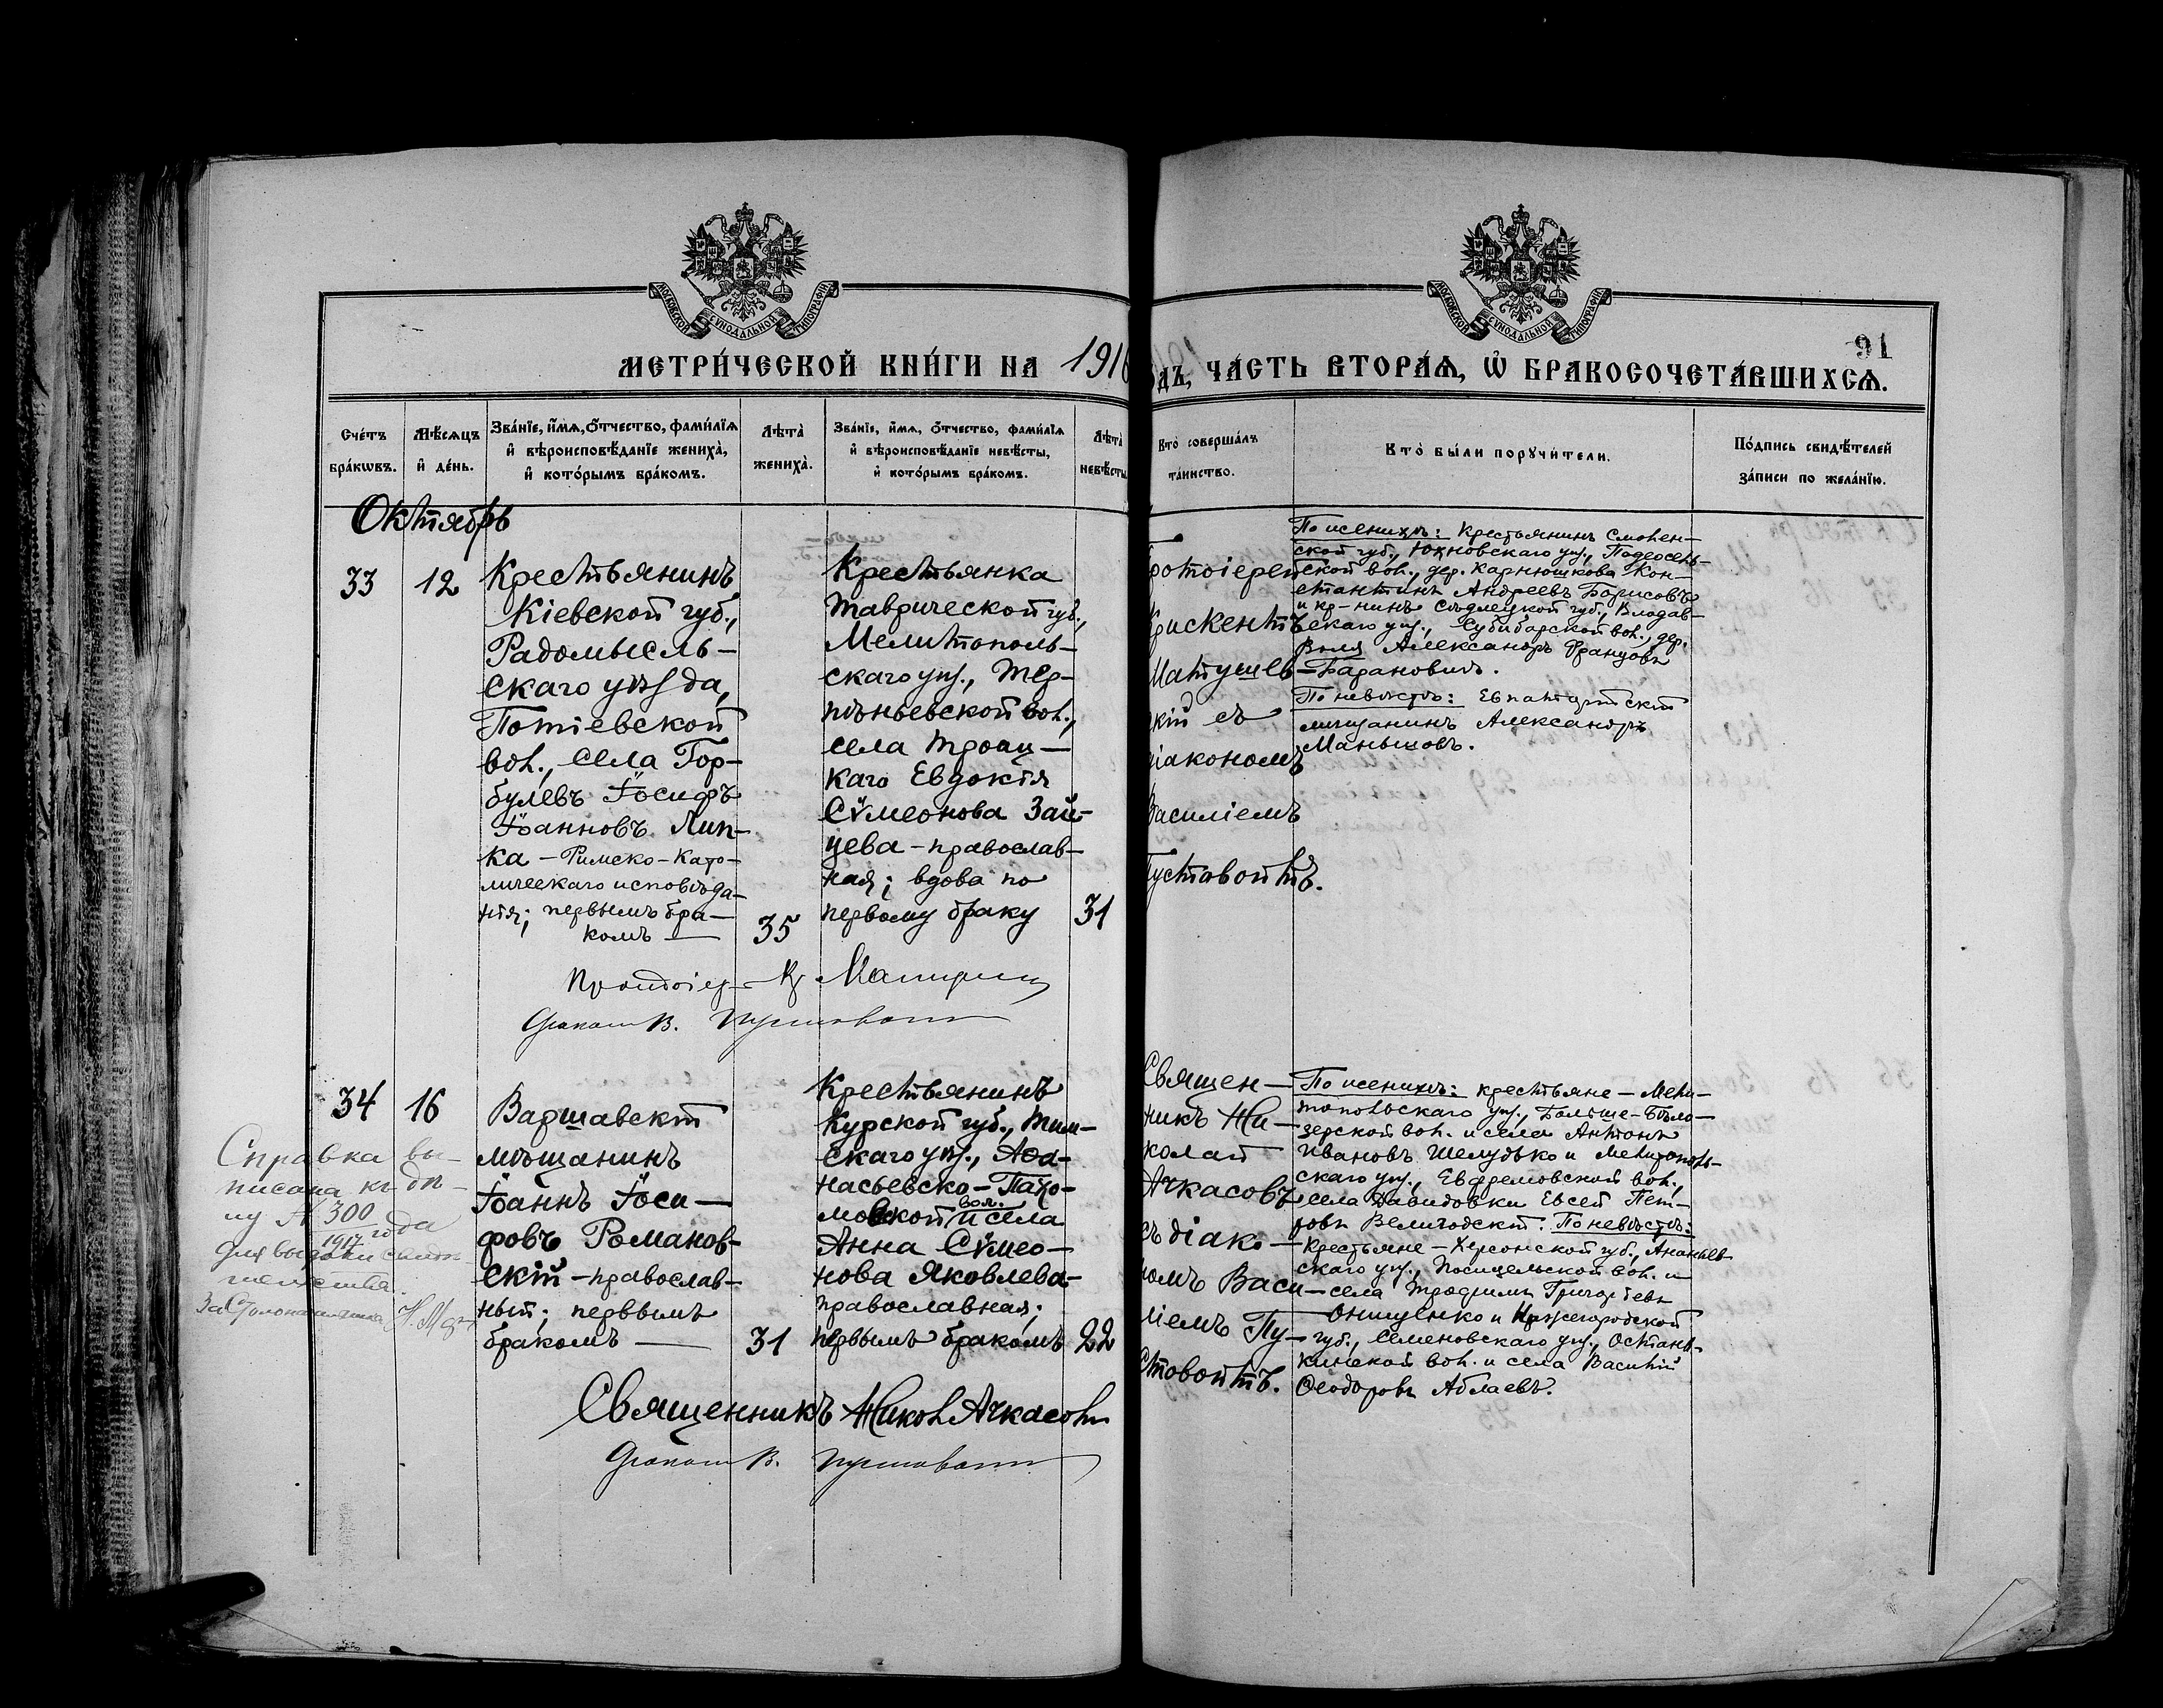 МОСКОВСКОЙ СѴНОДАЛЬНОЙ ТИПОГРАФІИ
МОСКОВСКОЙ СѴНОДАЛЬНОЙ ТИПОГРАФІИ
91
МЕТРИ́ЧЕСКОЙ КНИ́ГИ НА 1916
ДЪ, ЧА́СТЬ ВТОРА́Ѧ, Ѡ҆ БРАКОСОЧЕТА́ВШИХСѦ.
Сче́тъ бра́кѡвъ.
Мѣ́сѧцъ и҆ де́нь.
Зва́нїе, и҆́мѧ, ѻ҆́тчество, фами́лїѧ
и҆ вѣроисповѣ́данїе жениха̀,
и҆ кото́рымъ бра́комъ.
Лѣта̀ жениха̀.
Зва́нїе, и҆́мѧ, ѻ҆́тчество, фами́лїѧ
и҆ вѣроисповѣ́данїе невѣ́сты,
и҆ кото́рымъ бра́комъ.
Лѣта̀ невѣ́сты
Кто̀ соверша́лъ
та́инство.
Кто̀ бы́ли порꙋчи́тели.
По́дпись свидѣ́телей
за́писи по жела́нїю.
Октябрь
33
12
Крестьянинъ
Кіевской губ.,
Радомысль-
скаго уѣзда,
Потіевской
вол., села Гор-
булевъ Іосифъ
Іоанновъ Лип-
ка - Римско-Като-
лическаго исповѣда-
нія; первымъ бра-
комъ —
35
Крестьянка
Таврической губ.,
Мелитополь-
скаго уѣз., Тер-
пѣньевской вол.,
села Троиц-
каго Евдокія
Сѵмеонова Зай-
цева - православ-
ная; вдова по
первому браку
31
ротоіерей
Крискентъ
Матушев-
кій съ
діакономъ
Василіемъ
Пустовойтъ.
По женихѣ: Крестьянинъ Смолен-
ской губ., Юхновскаго уѣз.,
ской вол., дер. Карнюшкова Кон-
стантинъ Андреевъ Борисовъ
и кр-нинъ Сѣдлецкой губ., Влодав-
скаго уѣз., вол., дер.
Воля Александръ Францовъ
- Барановичъ.
По невѣстѣ: Евпаторійскій
мѣщанинъ Александръ
Маньшовъ.
Протоіер. Кр Матушев
Діаконъ В. Пустовойт
34
16
Варшавскій
мѣщанинъ
Іоаннъ Іоси-
фовъ Романов-
скій - православ-
ный; первымъ
бракомъ —
31
Крестьянинъ
Курской губ., Тим-
скаго уѣз., Аѳа-
насьевско-Пахо-
мовской вол. и села
Анна Сѵмео-
нова Яковлева-
православная;
первымъ бракомъ
22
Священ-
никъ Ни-
колай
Ачкасовъ
съ діако-
номъ Васи-
ліемъ Пу-
стовойтъ.
По женихѣ: крестьяне - Мели-
топольскаго уѣз., Больше-Бѣло-
зерской вол. и села Антонъ
Ивановъ Шелудько и Мелитополь-
скаго уѣз., Ефремовской вол.,
села Давидовки Евсей Пет-
ровъ Величодскій. По невѣстѣ:
Крестьяне - Херсонской губ., Ананьев-
скаго уѣз., Посицельской вол. и
села Трофимъ Григорьевъ
Онищенко и Нижегородской
губ., Семеновскаго уѣз., Останъ-
кинской вол. и села Василій
Ѳеодоровъ Аблаевъ.
Справка вы-
писана къ дѣ-
лу № 300
1917 года
для выдачи свидѣ-
тельства.
За Столоначальника Н.
Священникъ Никол Ачкасовъ
Діаконъ В. Пустовойт